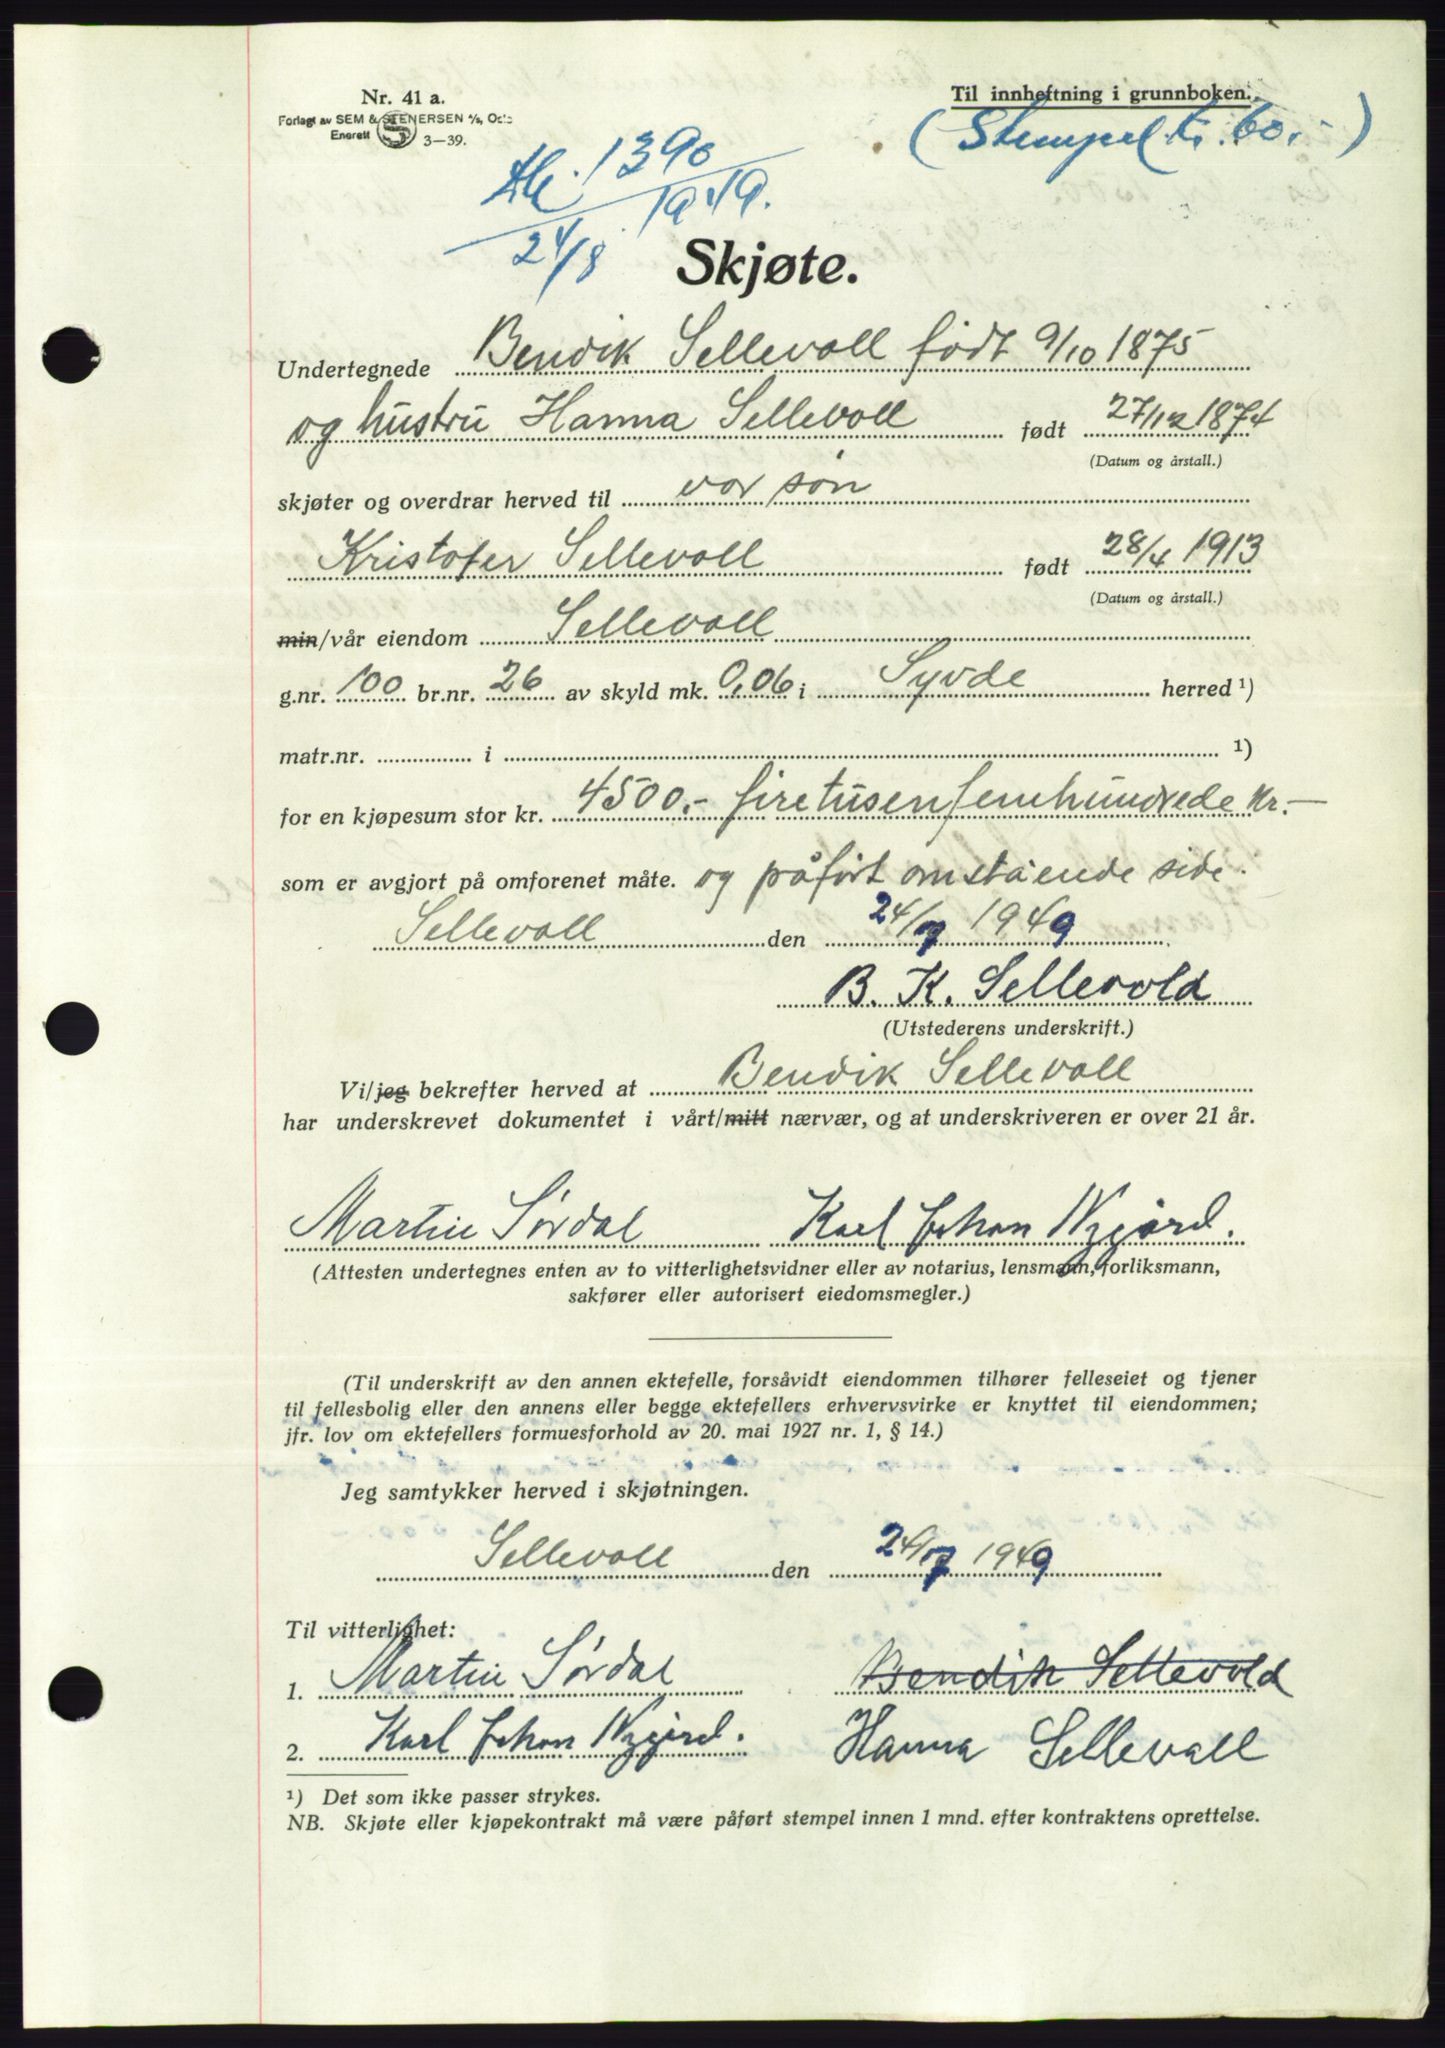 Nr. 41 a.
Forlagt av SEM & STENERSEN A/S, Oslo
Enerett
S
3—39.
Til innheftning i grunnboken.
(Stempel kr. 60.-)
1390
1949.
24/8
Skjøte.
Undertegnede Bendik Sellevoll født 9/10 1875
og hustru Hanna Sellevoll født 27/12 1874
(Datum og årstall.)
skjøter og overdrar herved til vor søn
Kristofer Sellevoll født 28/4 1913
(Datum og årstall.)
min/vår eiendom Sellevoll
g.nr. 100 br.nr. 26 av skyld mk. 0,06 i Syvde herred ¹)
matr.nr. i ¹)
for en kjøpesum stor kr. 4500.- firetusenfemhundrede kr.—
som er avgjort på omforenet måte. og påført omstående side.
Sellevoll den 24/7 1949
B. K. Sellevold
(Utstederens underskrift.)
Vi/jeg bekrefter herved at Bendik Sellevoll
har underskrevet dokumentet i vårt/mitt nærvær, og at underskriveren er over 21 år.
Martin Sørdal Karl Johan Nygård.
(Attesten undertegnes enten av to vitterlighetsvidner eller av notarius, lensmann, forliksmann,
sakfører eller autorisert eiedomsmegler.)
(Til underskrift av den annen ektefelle, forsåvidt eiendommen tilhører felleseiet og tjener
til fellesbolig eller den annens eller begge ektefellers erhvervsvirke er knyttet til eiendommen;
jfr. lov om ektefellers formuesforhold av 20. mai 1927 nr. 1, § 14.)
Jeg samtykker herved i skjøtningen.
Sellevoll den 24/7 1949
Til vitterlighet:
1. Martin Sørdal Bendik Sellevold
2. Karl Johan Nygård. Hanna Sellevall
¹) Det som ikke passer strykes.
NB. Skjøte eller kjøpekontrakt må være påført stempel innen 1 mnd. efter kontraktens oprettelse.